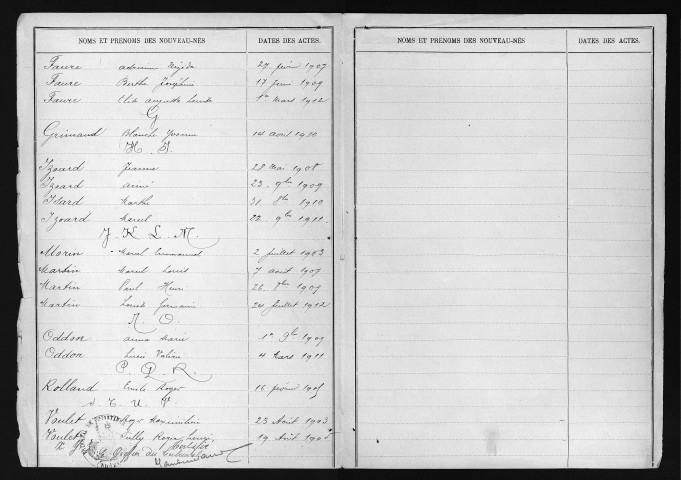 NOMS ET PRÉNOMS DES NOUVEAU-NÉS DATES DES ACTES.
Faure 27 1907
Faure Berthe Joséphine 17 1909
Faure Augusta 1er Mars 1912
G
Grimaud Blanche Yvonne 14 avril 1910
H. I.
Izoard Jeanne 28 Mai 1908
Izoard Aimé 23 9bre 1909
Isard Marthe 31 8bre 1910
Izoard Marcel 22 9bre 1911
J. K. L. M.
Morin Marcel Emmanuel 2 Juillet 1903
Martin Marcel Louis 7 août 1907
Martin Paul Henri 26 1909
Martin Germain 24 Juillet 1912
N. O.
Oddon Anna Marie 1er 9bre 1909
Oddon Valérie 4 Mars 1911
P. Q. R.
Rolland Emile Roger 16 février 1905
S. T. U. V.
Voulet Roger Maximilien 23 Août 1903
Voulet Sully Roger 19 Août 1905
Greffier du Tribunal
NOMS ET PRÉNOMS DES NOUVEAU-NÉS DATES DES ACTES.